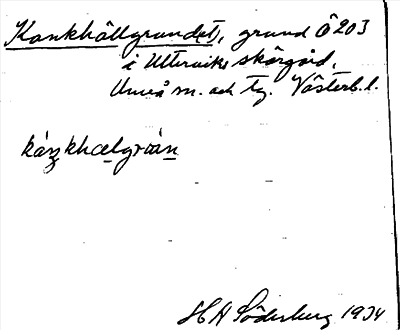 Kankhällgrundet, grund Ö 203
i Ulterviks skärgård,
Umeå m. och tg. Västerb. l.
kánkhælgriàn
H A Söderberg 1934